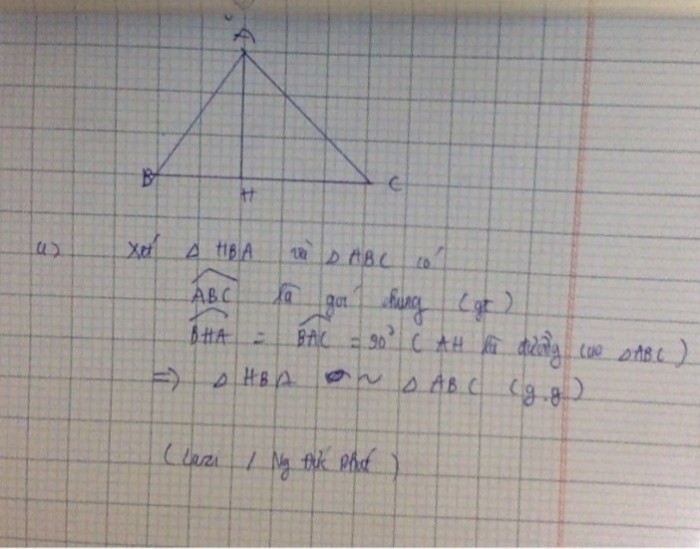 A
B
H
C
a) Xét △ HBA và △ ABC có
ABC là góc chung (gt)
BHA = BAC = 90° ( AH là đường cao △ABC )
=> △ HBA ~ △ ABC (g.g)
( Lazi / Ng Đức Phát )